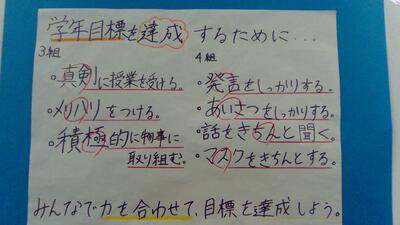 学年目標を達成するために…
3組
・真剣に授業を受ける。
・メリハリをつける。
・積極的に物事に
取り組む。
4組
・発言をしっかりする。
・あいさつをしっかりする。
・話をきちんと聞く。
・マスクをきちんとする。
みんなで力を合わせて、目標を達成しよう。